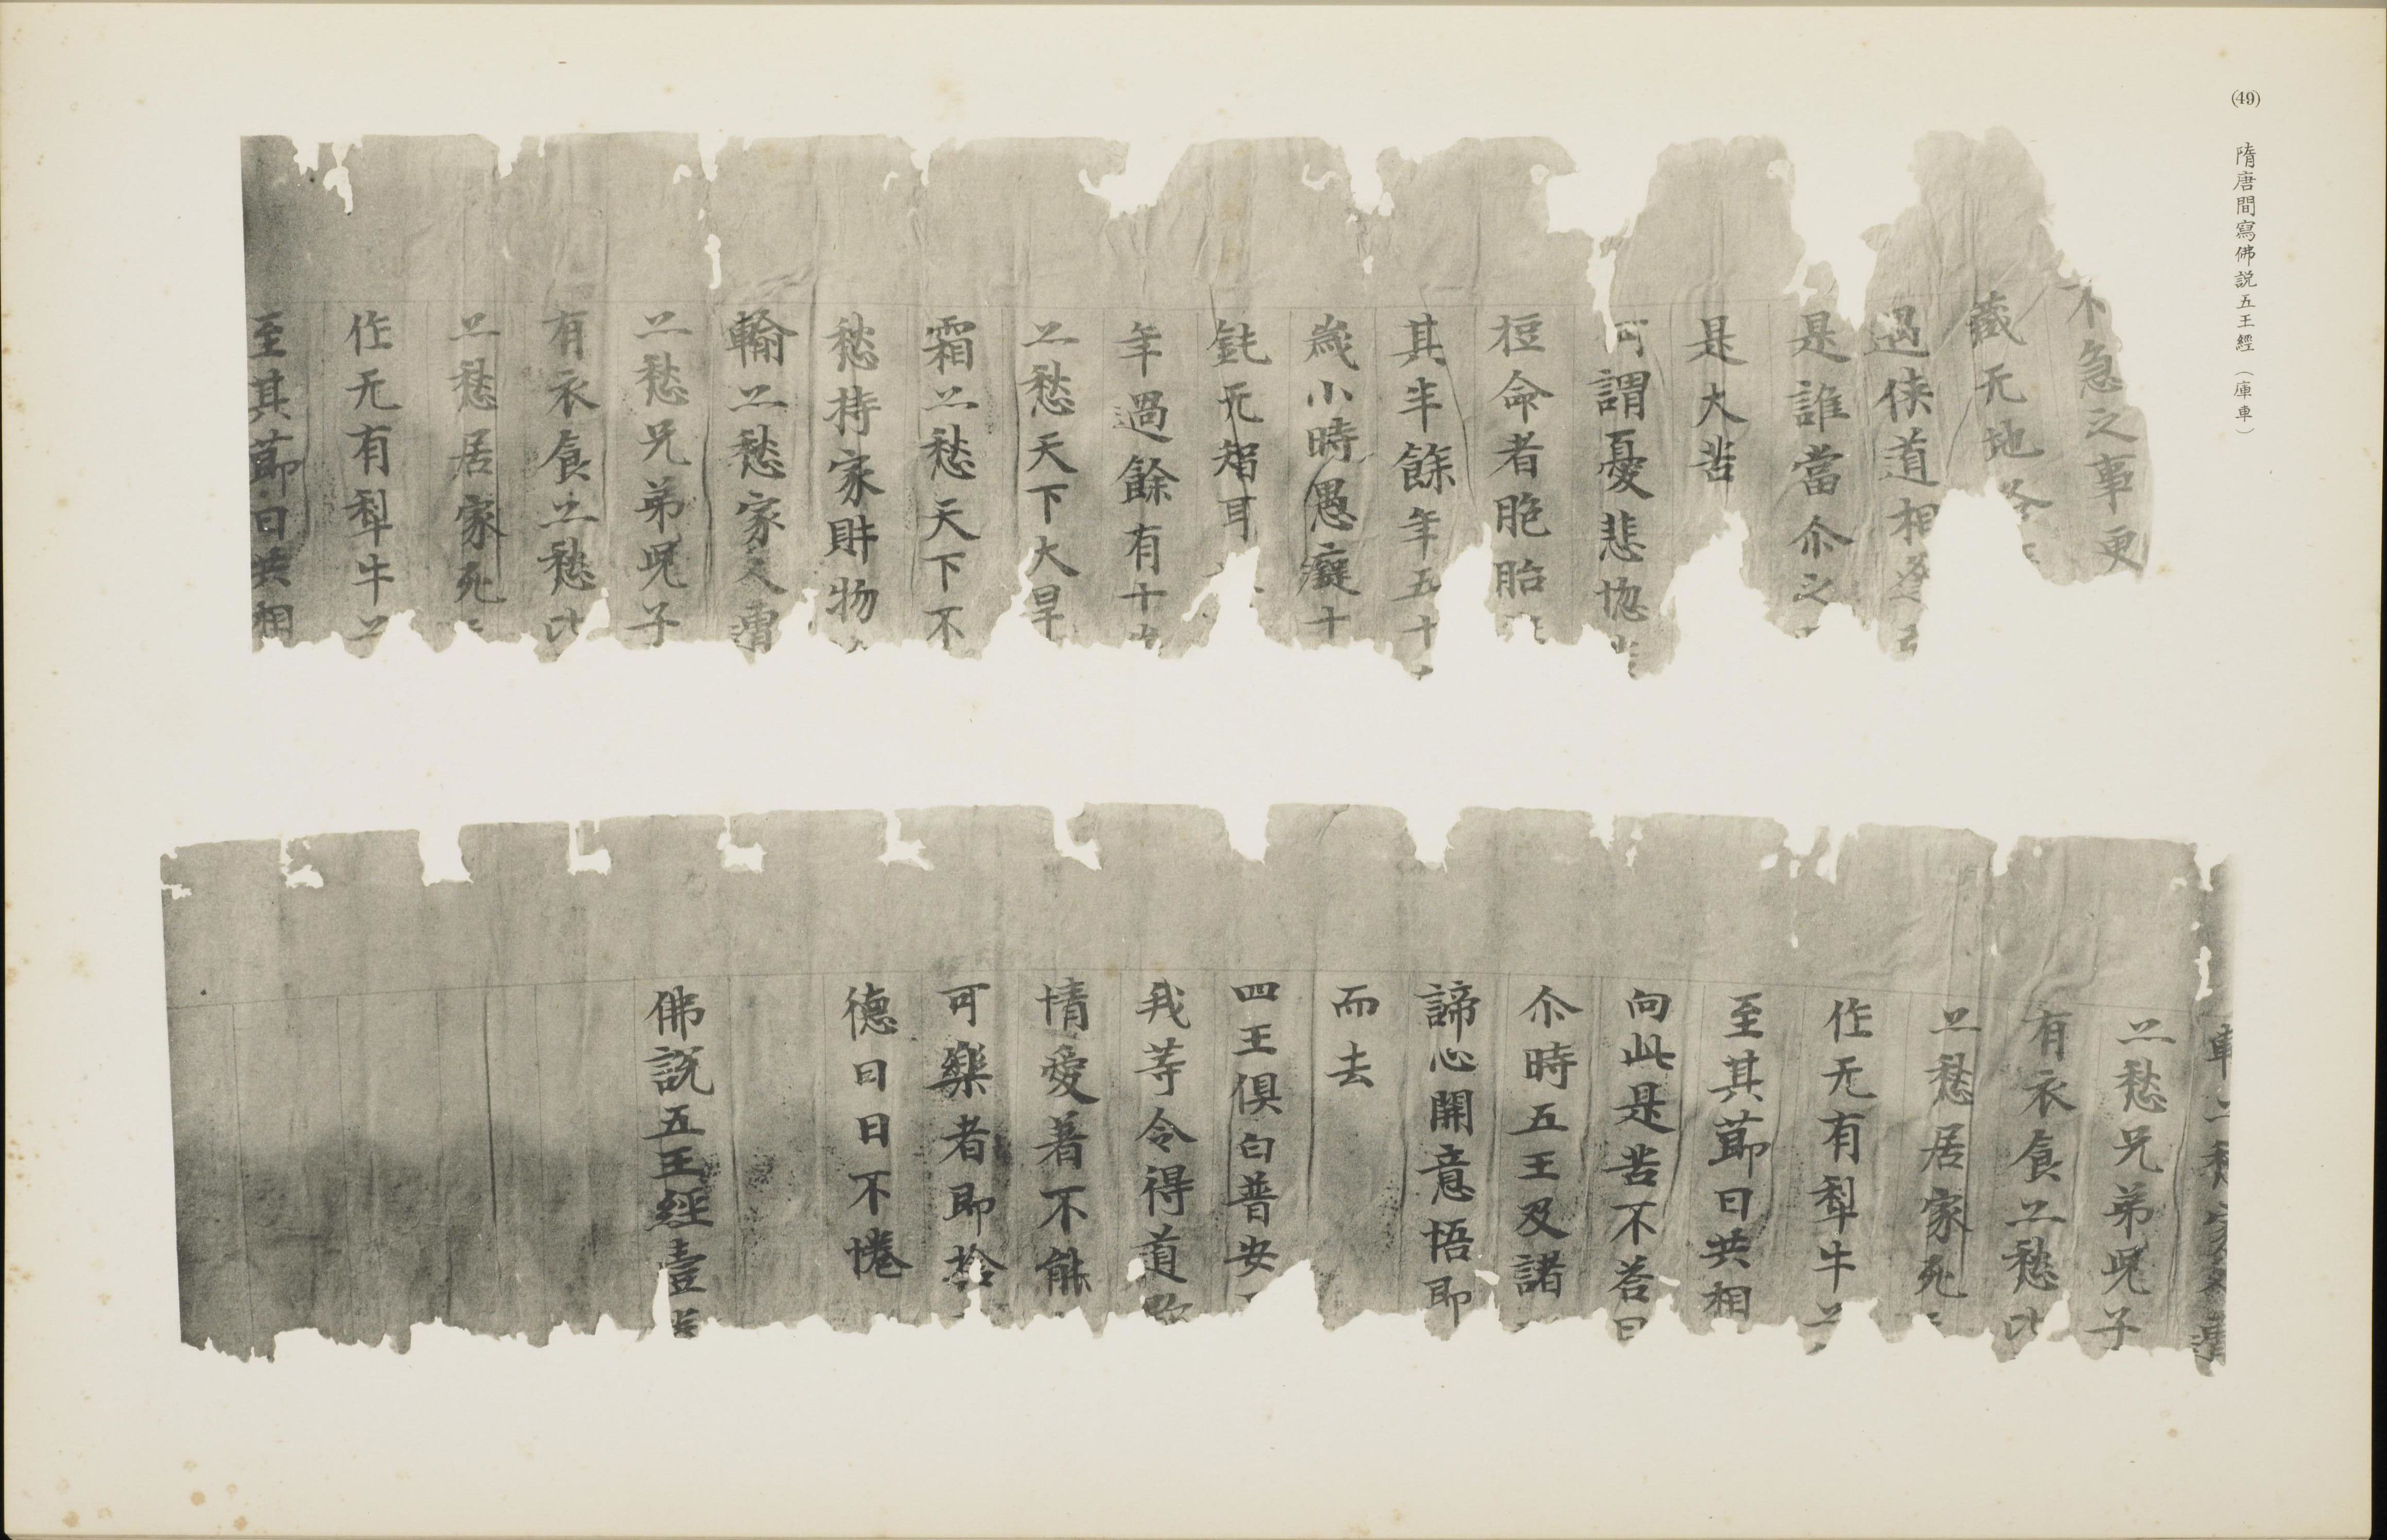 (49) 隋唐間寫佛説五王經（庫車）
不急之事更
藏无地
過俠道相
是誰當尒之
是大苦
可謂憂悲惱
桓命者胞胎
其半餘年五十
歲小時愚癡十
鈍无智耳
年過餘有十
亦愁天下大旱
霜亦愁天下不
愁持家財物
輸亦愁家人遭
亦愁兄弟児子
有衣食亦愁比
亦愁居家死
作无有犁牛亦
至其莭日共相
亦愁兄弟児子
有衣食亦愁比
亦愁居家死
作无有犁牛亦
至其莭日共相
向此是苦不荅曰
尒時五王及諸
諦心開意悟即
而去
四王俱白普安
我等令得道
情愛著不能
可樂者即捨
德日日不惓
佛説五王經壹